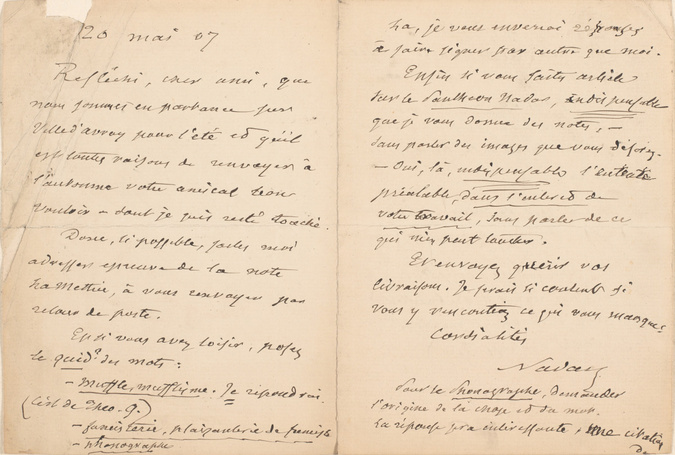 20 mai 07
Réfléchi, cher ami, que
nous sommes en partance pour
Ville d'avray pour l'été et qu'il
est toutes raisons de renvoyer à
l'automne votre amical bon
vouloir – dont je suis resté touché.
Donc, si possible, faites moi
adresser épreuve de la note
La Mettrie, à vous renvoyer par
retour de poste.
Et si vous avez loisir, posez
le quid? des mots :
– Muffle, mufflisme. Je répondrai.
(C'est de Théo. G.)
– fumisterie, plaisanterie de fumiste
– phonographe
La, je vous enverrai réponses
à faire signer par autre que moi.
Enfin si vous faites article
sur le Panthéon Nadar, indispensable
que je vous donne des notes, –
sans parler des images que vous
– Oui, là, indispensable l'entente
préalable, dans l'intérêt de
votre travail, sans parler de ce
qui m'en peut toucher.
Et envoyez vos
livraisons. Je serais si content si
vous y rencontriez ce qui vous manque.
Cordialités
Nadar
Pour le phonographe, demander
l'origine de la chose et du mot.
La réponse sera intéressante, une citation
de